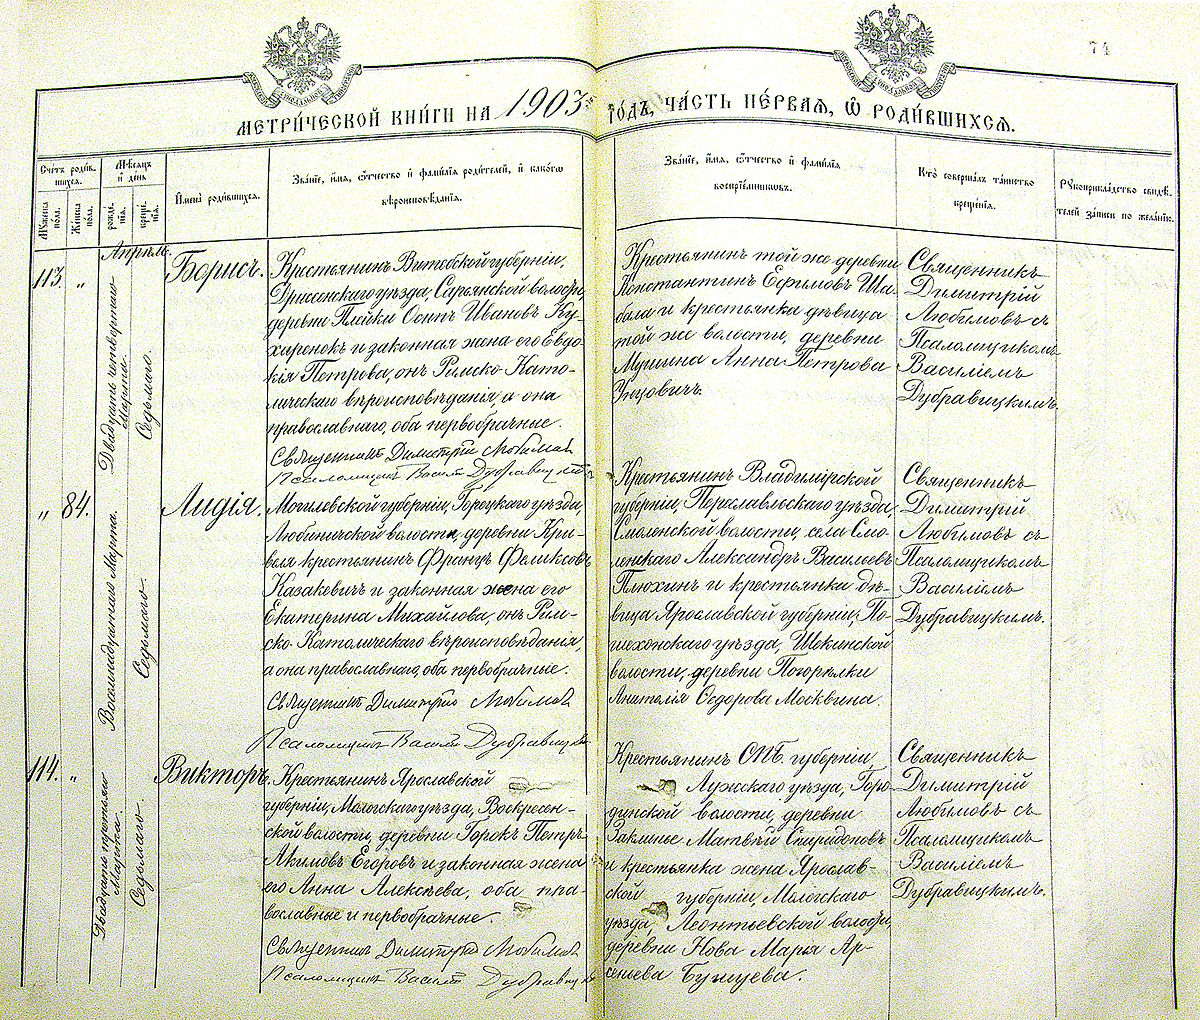 74
МЕТРИ́ЧЕСКОЙ КНИ́ГИ НА 1903 ГО́ДЪ, ЧА́СТЬ ПЕ́РВАЯ, Ѿ РОДИ́ВШИХСЯ.
Сче́тъ роди́вшихся.
Му́жеска по́ла.
Же́нска по́ла.
Мѣ́сяцъ и де́нь
рожде́нія.
креще́нія.
Имена̀ роди́вшихся.
Зва́ніе, и́мя, ѻ́тчество и фами́лія роди́телей, и како́гѡ
вѣроисповѣ́данія.
Зва́ніе, и́мя, ѻ́тчество и фами́лія
воспріе́мниковъ.
Кто̀ соверша́лъ та́инство
креще́нія.
Рукоприкла́дство свидѣ́-
телей за́писи по жела́нію.
Апрѣль.
113.
„
Двадцать четвертаго
Марта.
Седьмого.
Борисъ.
Крестьянинъ Витебской губерніи,
Дриссенскаго уѣзда, Сарьянской волости,
деревни Плейки Осипъ Ивановъ Ку-
харенокъ и законная жена его Евдо-
кія Петрова, онъ Римско-Като-
лическаго вѣроисповѣданія, а она
православнаго, оба первобрачные.
Священникъ Димитрій Любимовъ
Псаломщикъ Василій Дубравицкій
Крестьянинъ той же деревни
Константинъ Ефимовъ Ша-
бала и крестьянка дѣвица
той же волости, деревни
Мушина Анна Петрова
Унзовичъ.
Священникъ
Димитрій
Любимовъ съ
Псаломщикомъ
Василіемъ
Дубравицкимъ.
„
84.
Восемнадцатаго Марта.
Седьмого
Лидія.
Могилевской губерніи, Горецкаго уѣзда,
Любиничской волости, деревни Кри-
веля крестьянинъ Францъ Феликсовъ
Казакевичъ и законная жена его
Екатерина Михайлова, онъ Рим-
ско-Католическаго вѣроисповѣданія,
а она православнаго, оба первобрачные.
Священникъ Димитрій Любимовъ
Псаломщикъ Василій Дубравицкій
Крестьянинъ Владимірской
губерніи, Переславльскаго уѣзда,
Смоленской волости, села Смо-
ленскаго Александръ Васильевъ
Плюхинъ и крестьянка дѣ-
вица Ярославской губерніи, По-
шехонскаго уѣзда, Щекинской
волости, деревни Погорѣлки
Анатолія Ѳедорова Москвина.
Священникъ
Димитрій
Любимовъ съ
Псаломщикомъ
Василіемъ
Дубравицкимъ.
114.
„
Двадцать третьяго
Марта.
Седьмаго.
Викторъ.
Крестьянинъ Ярославской
губерніи, Мологскаго уѣзда, Воскресен-
ской волости, деревни Горокъ Петръ
Акимовъ Егоровъ и законная жена
его Анна Алексѣева, оба пра-
вославные и первобрачные.
Священникъ Димитрій Любимовъ
Псаломщикъ Василій Дубравицкій
Крестьянинъ СПБ. губерніи
Лужскаго уѣзда, Горо-
динской волости, деревни
Заклинье Матвѣй Спиридоновъ
и крестьянка жена Ярослав-
ской губерніи, Мологскаго
уѣзда, Леонтьевской волости,
деревни Нова Марія Ар-
сеньева
Священникъ
Димитрій
Любимовъ съ
Псаломщикомъ
Василіемъ
Дубравицкимъ.